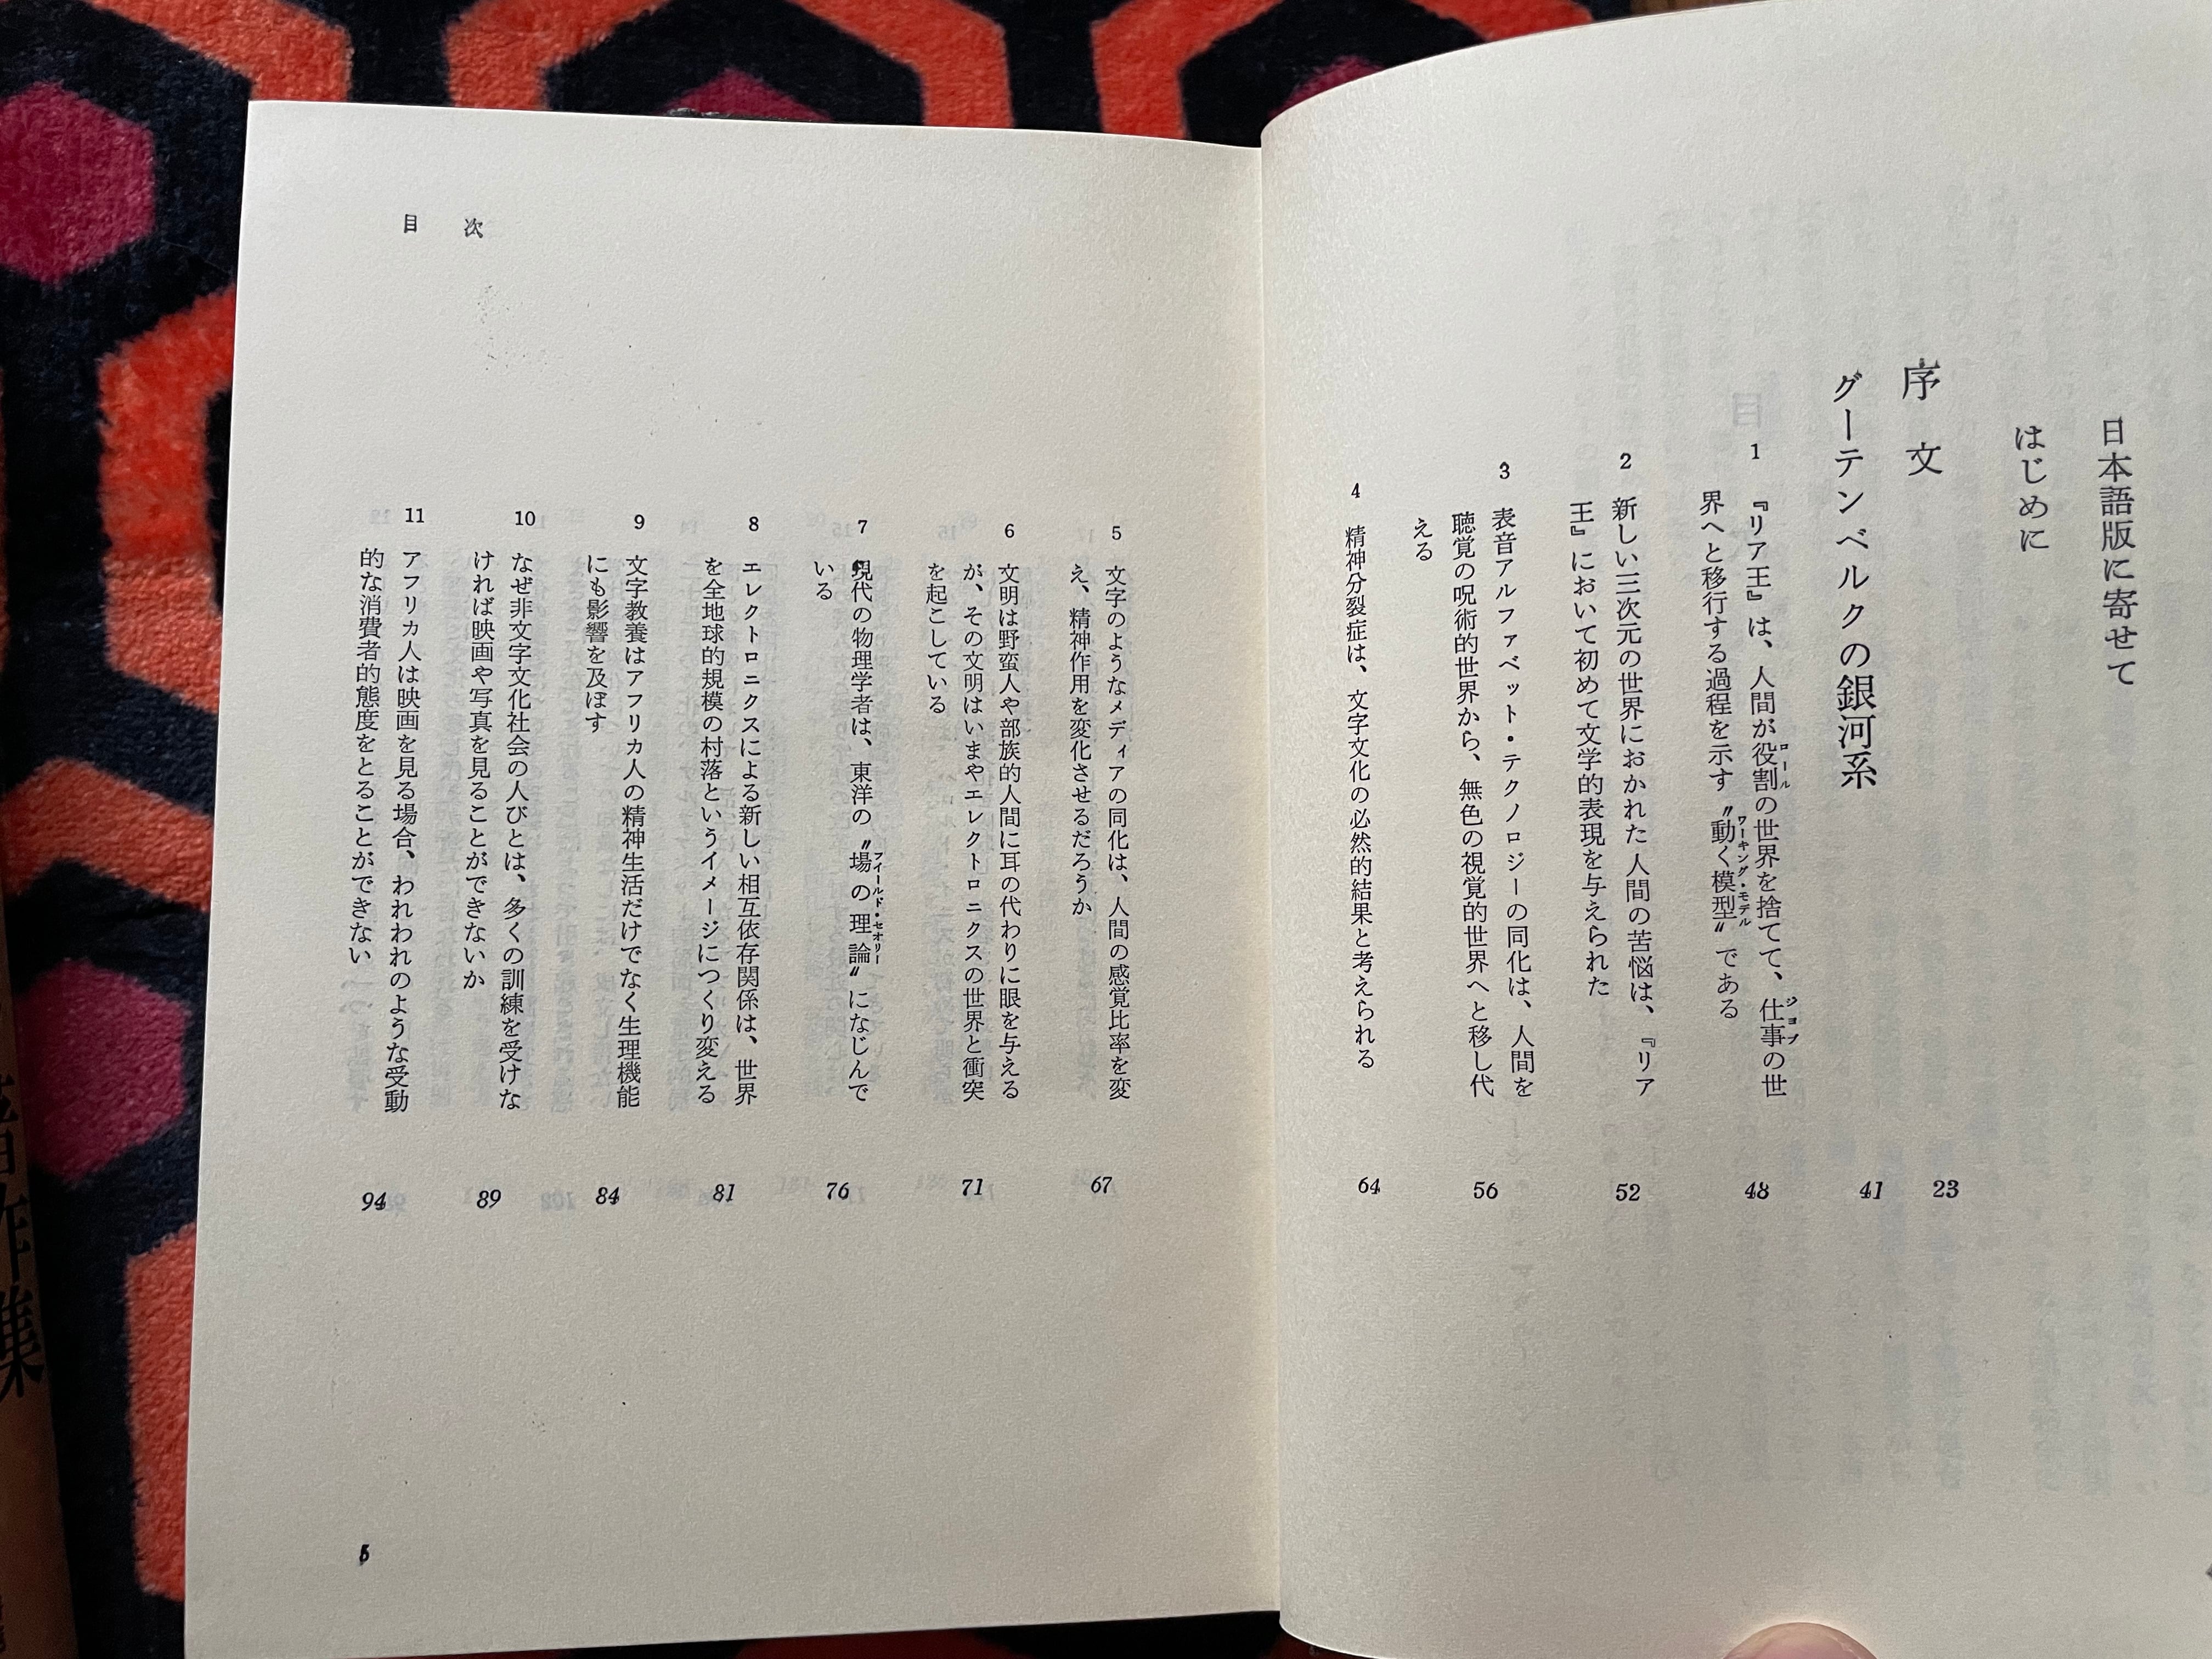 日本語版に寄せて
はじめに
序文 23
グーテンベルクの銀河系 41
1 『リア王』は、人間が役割の世界を捨てて、仕事の世
界へと移行する過程を示す〝動く模型〟である 48
2 新しい三次元の世界におかれた人間の苦悩は、『リア
王』において初めて文学的表現を与えられた 52
3 表音アルファベット・テクノロジーの同化は、人間を
聴覚の呪術的世界から、無色の視覚的世界へと移し代
える 56
4 精神分裂症は、文字文化の必然的結果と考えられる 64
目次
5 文字のようなメディアの同化は、人間の感覚比率を変
え、精神作用を変化させるだろうか 67
6 文明は野蛮人や部族的人間に耳の代わりに眼を与える
が、その文明はいまやエレクトロニクスの世界と衝突
を起こしている 71
7 現代の物理学者は、東洋の〝場の理論〟になじんで
いる 76
8 エレクトロニクスによる新しい相互依存関係は、世界
を全地球的規模の村落というイメージにつくり変える 81
9 文字教養はアフリカ人の精神生活だけでなく生理機能
にも影響を及ぼす 84
10 なぜ非文字文化社会の人びとは、多くの訓練を受けな
ければ映画や写真を見ることができないか 89
11 アフリカ人は映画を見る場合、われわれのような受動
的な消費者的態度をとることができない 94
ロール
ジョブ
ワーキング・モデル
フィールド・セオリー
5
作集